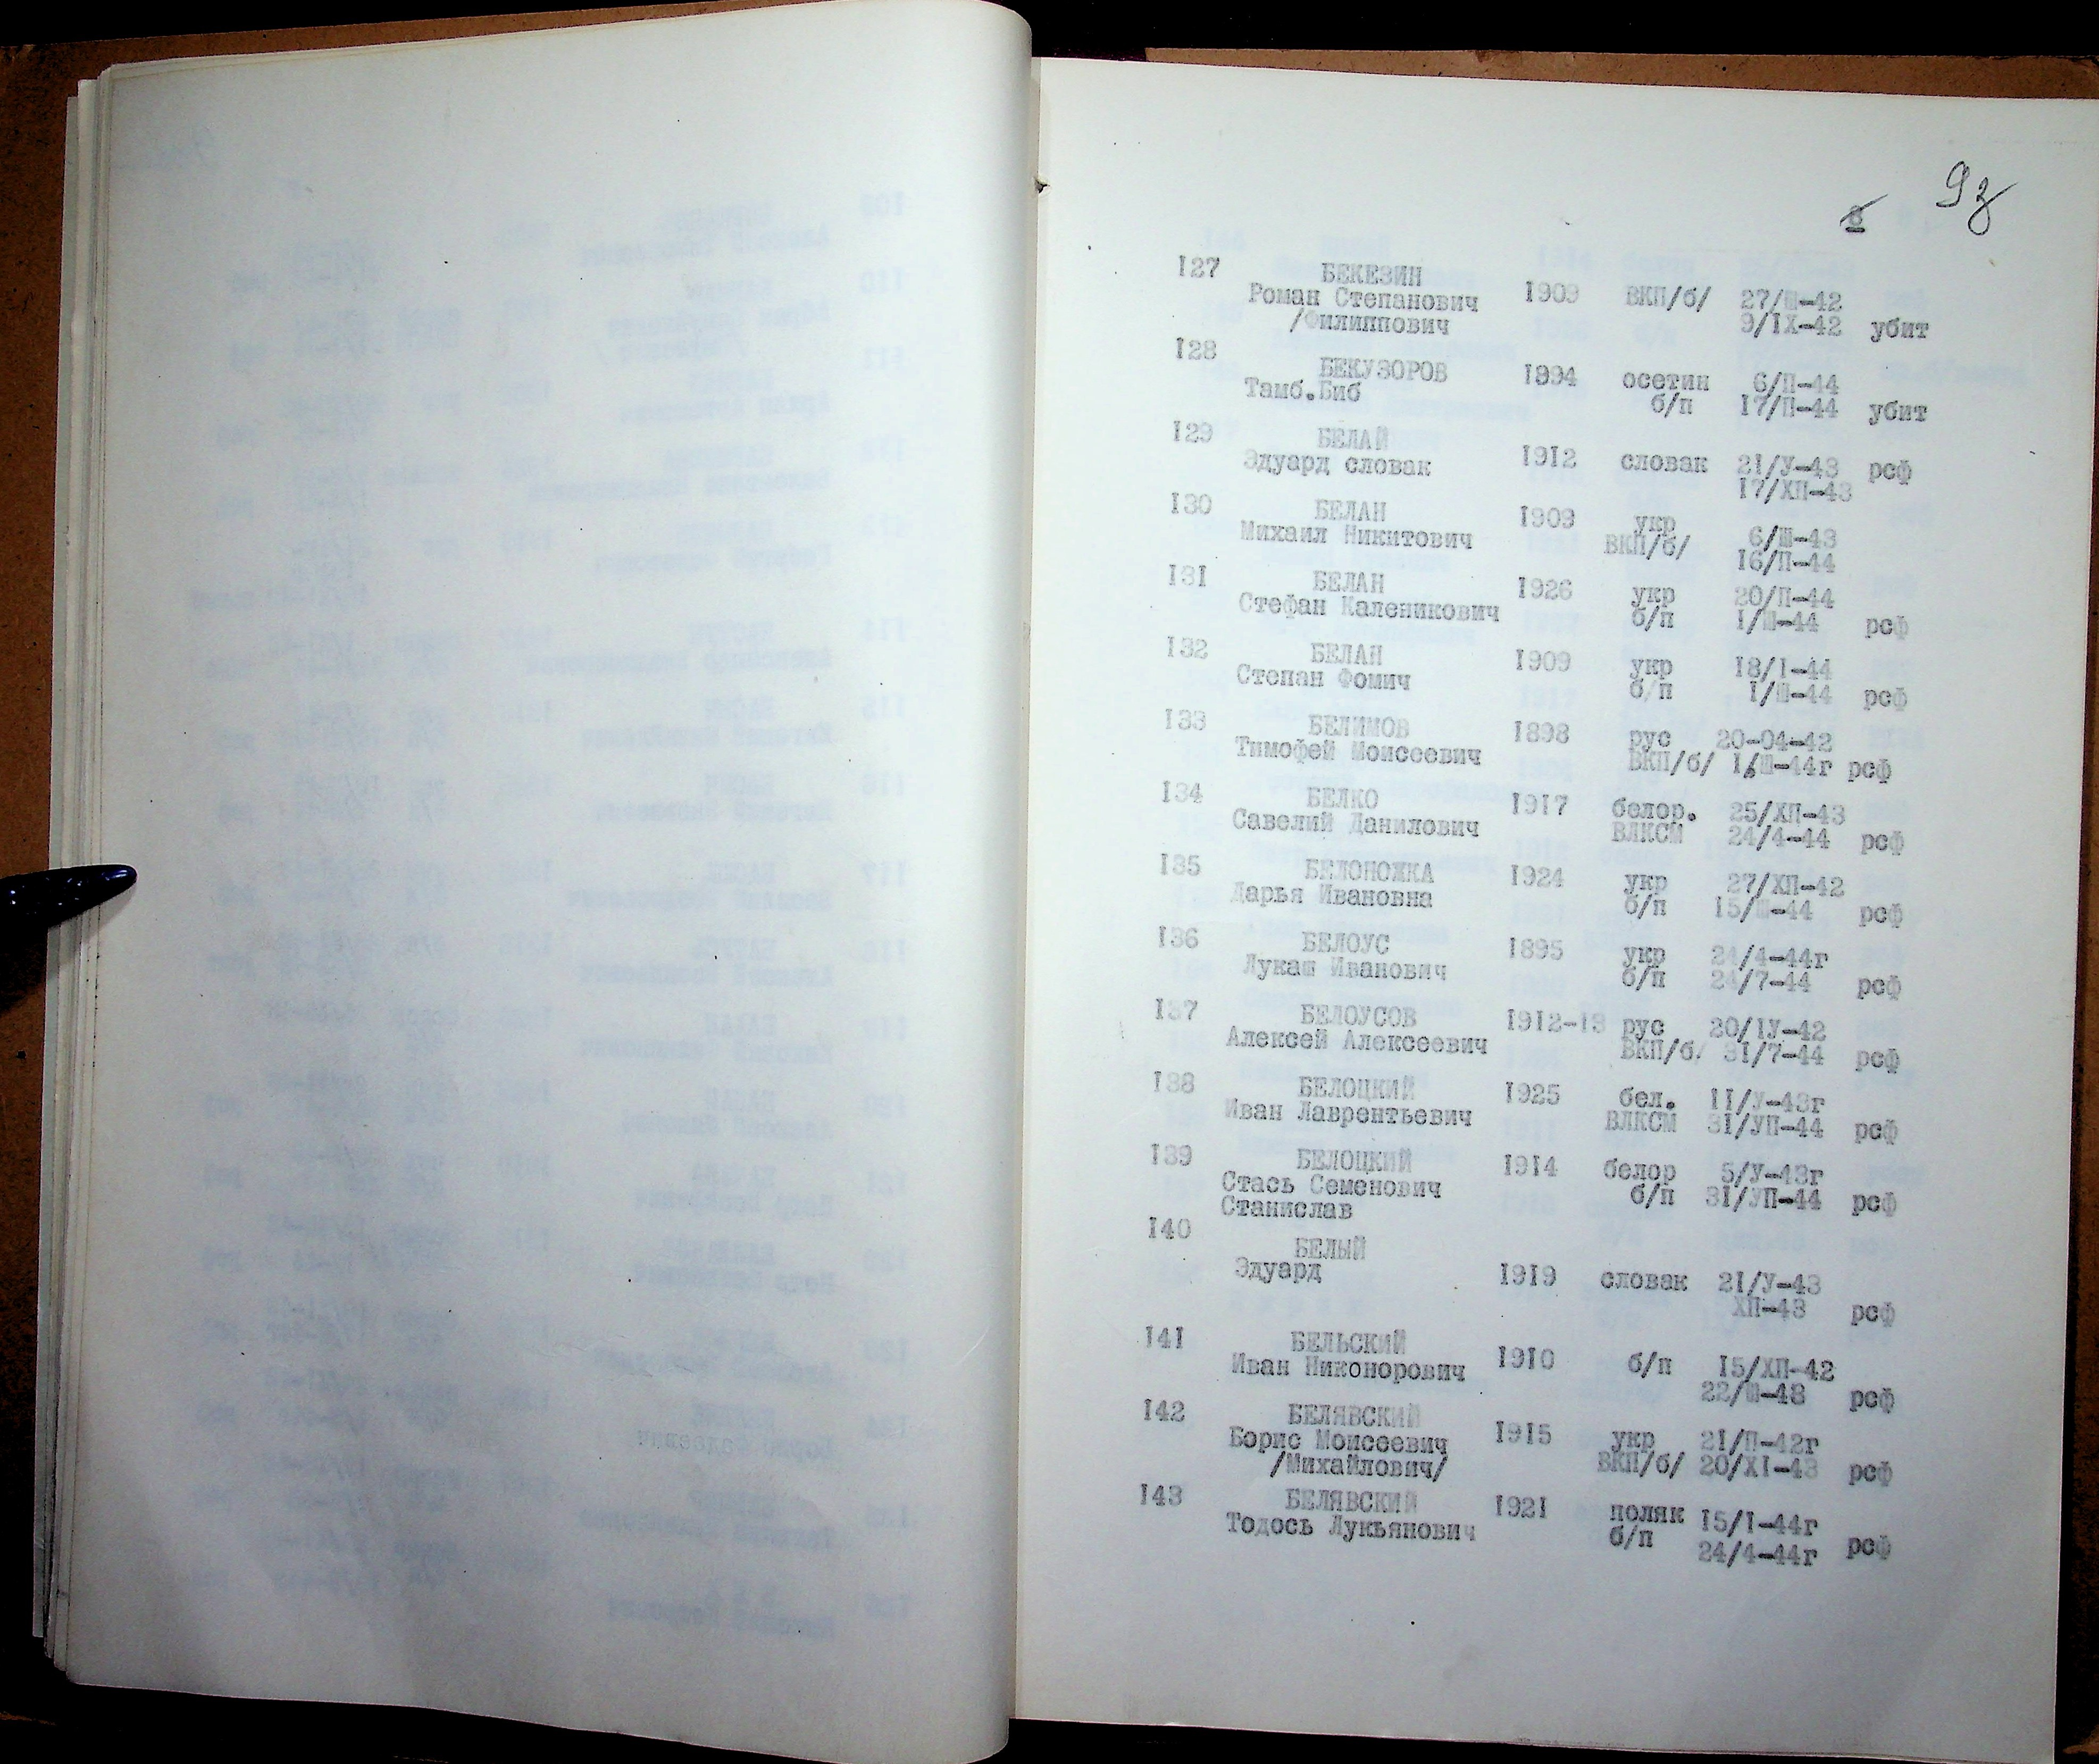 93
8
127 БЕКЕЗИН
Роман Степанович 1909 ВКП/б/ 27/Ш-42
/Филиппович 9/IX-42 убит
128 БЕКУЗОРОВ 1994 осетин 6/П-44
Тамб.Биб б/п 17/П-44 убит
129 БЕЛАЙ
Эдуард словак 1912 словак 21/У-43 рсф
17/ХП-43
130 БЕЛАН 1909 укр 6/Ш-43
Михаил Никитович ВКП/б/ 16/П-44
131 БЕЛАН 1926 укр 20/П-44
Стефан Каленикович б/п 1/Ш-44 рсф
132 БЕЛАН 1909 укр 18/1-44
Степан Фомич б/п 1/Ш-44 рсф
133 БЕЛИМОВ 1898 рус 20-04-42
Тимофей Моисеевич ВКП/б/ 1/Ш-44г рсф
134 БЕЛКО 1917 белор. 25/ХП-43
Савелий Данилович ВЛКСМ 24/4-44 рсф
135 БЕЛОНОЖКА 1924 укр 27/ХП-42
Дарья Ивановна б/п 15/Ш-44 рсф
136 БЕЛОУС 1895 укр 24/4-44г
Лукаш Иванович б/п 24/7-44 рсф
137 БЕЛОУСОВ 1912-13 рус 20/1У-42
Алексей Алексеевич ВКП/б/ 31/7-44 рсф
138 БЕЛОЦКИЙ 1925 бел. 11/У-43г
Иван Лаврентьевич ВЛКСМ 31/УП-44 рсф
139 БЕЛОЦКИЙ 1914 белор 5/У-43г
Стась Семенович б/п 31/УП-44 рсф
Станислав
140 БЕЛЫЙ
Эдуард 1919 словак 21/У-43
ХП-43 рсф
141 БЕЛЬСКИЙ
Иван Никонорович 1910 б/п 15/ХП-42
22/Ш-43 рсф
142 БЕЛЯВСКИЙ
Борис Моисеевич 1915 укр 21/П-42г
/Михайлович/ ВКП/б/ 20/XI-43 рсф
143 БЕЛЯВСКИЙ 1921 поляк 15/1-44г
Тодось Лукьянович б/п 24/4-44г рсф